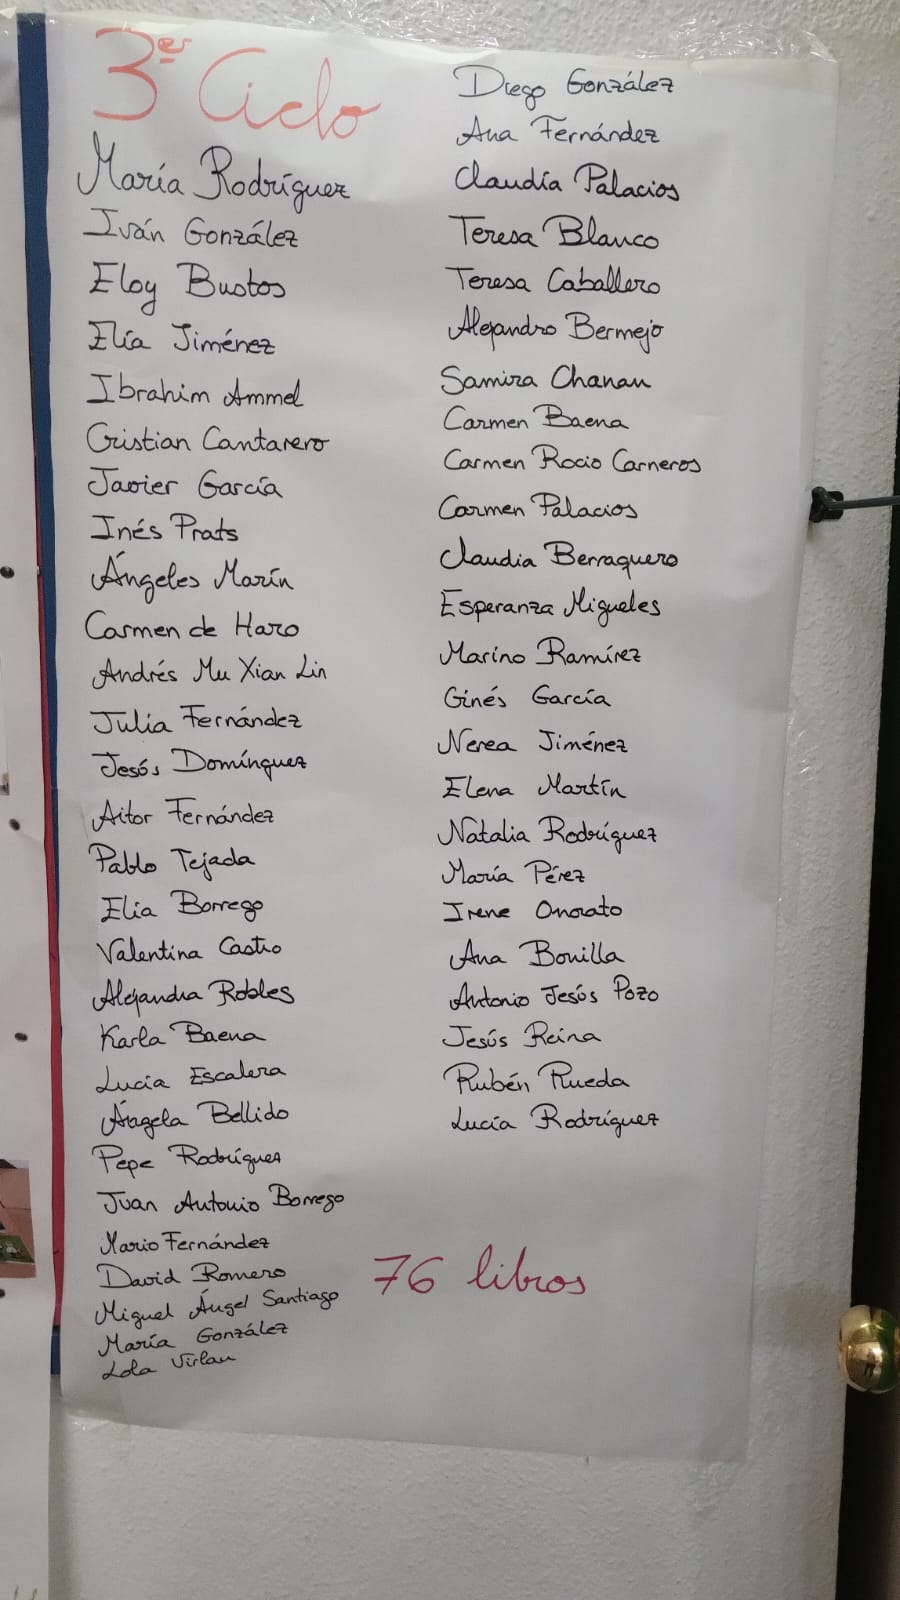 3er Ciclo
María Rodríguez
Iván González
Eloy Bustos
Elía Jiménez
Ibrahim Ammel
Cristian Cantarero
Javier García
Inés Prats
Ángeles Marín
Carmen de Haro
Andrés Mu Xian Lin
Julia Fernández
Jesús Domínguez
Aitor Fernández
Pablo Tejada
Elia Borrego
Valentina Castro
Alejandra Robles
Karla Baena
Lucia Escalera
Ángela Bellido
Pepe Rodríguez
Juan Antonio Borrego
Mario Fernández
David Romero
Miguel Ángel Santiago
María González
Lola Virlan
Diego González
Ana Fernández
Claudía Palacios
Teresa Blanco
Teresa Caballero
Alejandro Bermejo
Samira Chanan
Carmen Baena
Carmen Rocio Carneros
Carmen Palacios
Claudia Berraquero
Esperanza Migueles
Marino Ramírez
Ginés García
Nerea Jiménez
Elena Martín
Natalia Rodríguez
María Pérez
Irene Onorato
Ana Bonilla
Antonio Jesús Pozo
Jesús Reina
Rubén Rueda
Lucía Rodríguez
76 libros